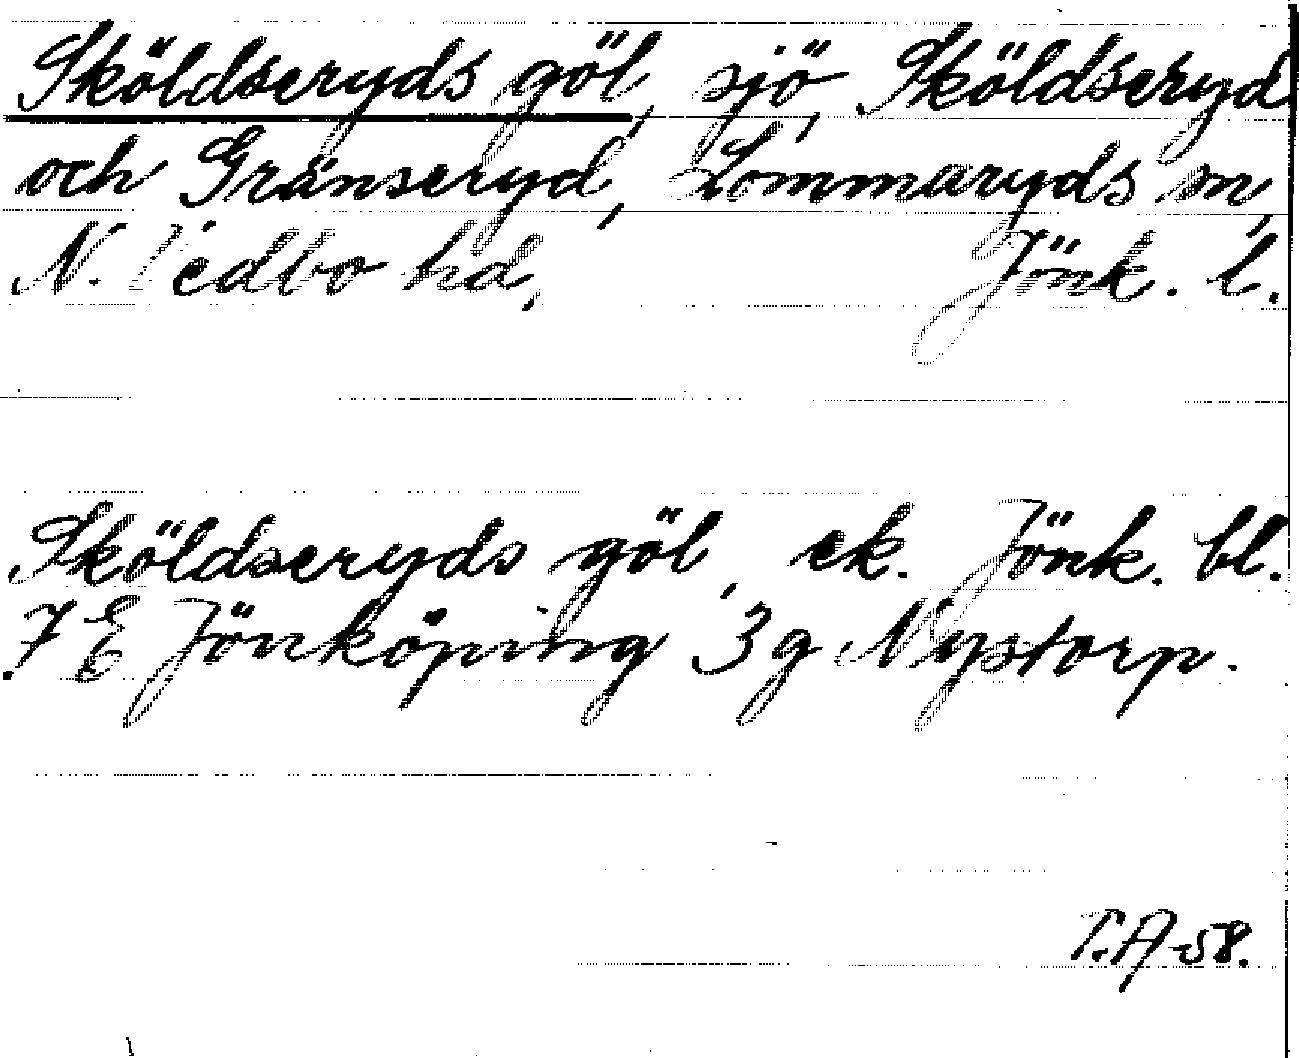 Sköldseryds göl, sjö, Sköldseryd
och Gränseryd, Lommaryds sn,
N. Vedbo hd, Jönk. l.
Sköldseryds göl, ek. Jönk. bl.
7 E Jönköping 3g Nystorp.
T.A-58.